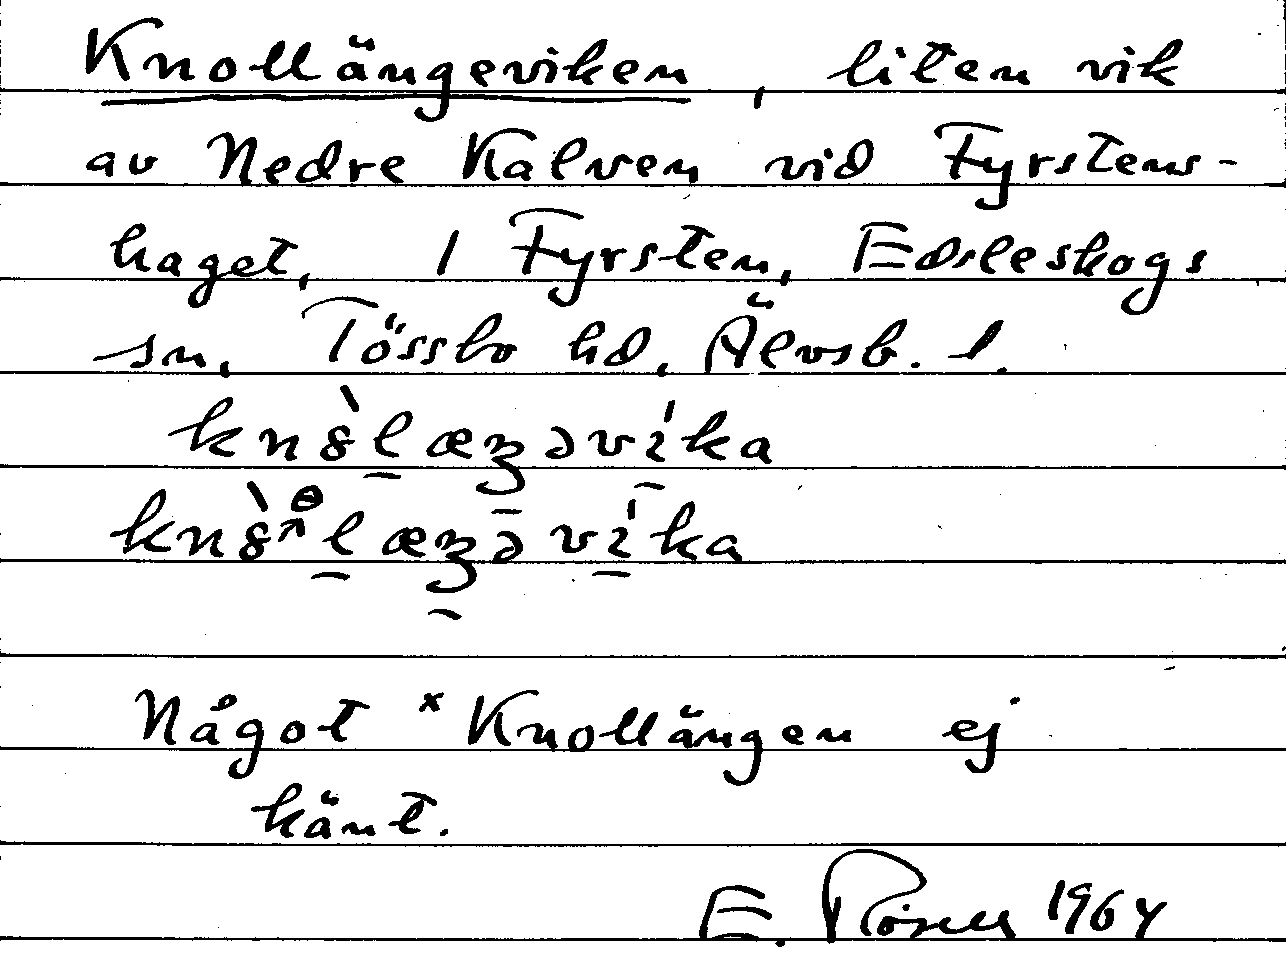 Knollängeviken, liten vik
av Nedre Kalven vid Fyrstens-
haget, 1 Fyrsten, Edsleskogs
sn, Tössbo hd, Älvsb. l.
Något ˣKnollängen ej
känt.
E. Rosell 1964